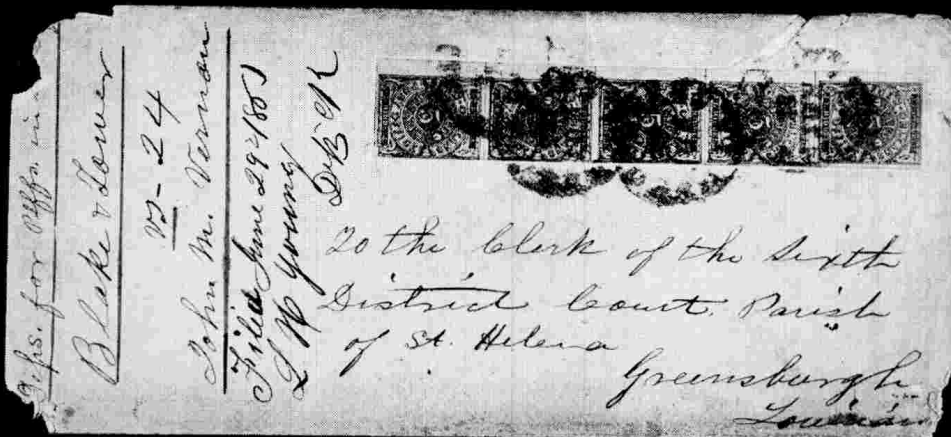 for Plffs. in
Blake & Lower
vs - 24
John M. Vernon
Filed June 29 - 1861
L W Young
Dy Clk
5 5 5 5
To the Clerk of the Sixth
District Court. Parish
of St. Helena
Greensburgh
Louisiana